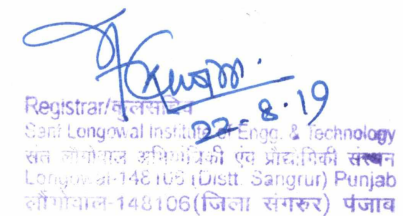 22-8-19
Registrar/कुलसचिव
Sant Longowal Institute of Engg. & Technology
संत लौंगोवाल अभियांत्रिकी एवं प्रौद्योगिकी संस्थान
Longowal-148106 (Distt. Sangrur) Punjab
लौंगोवाल-148106 (जिला संगरुर) पंजाब